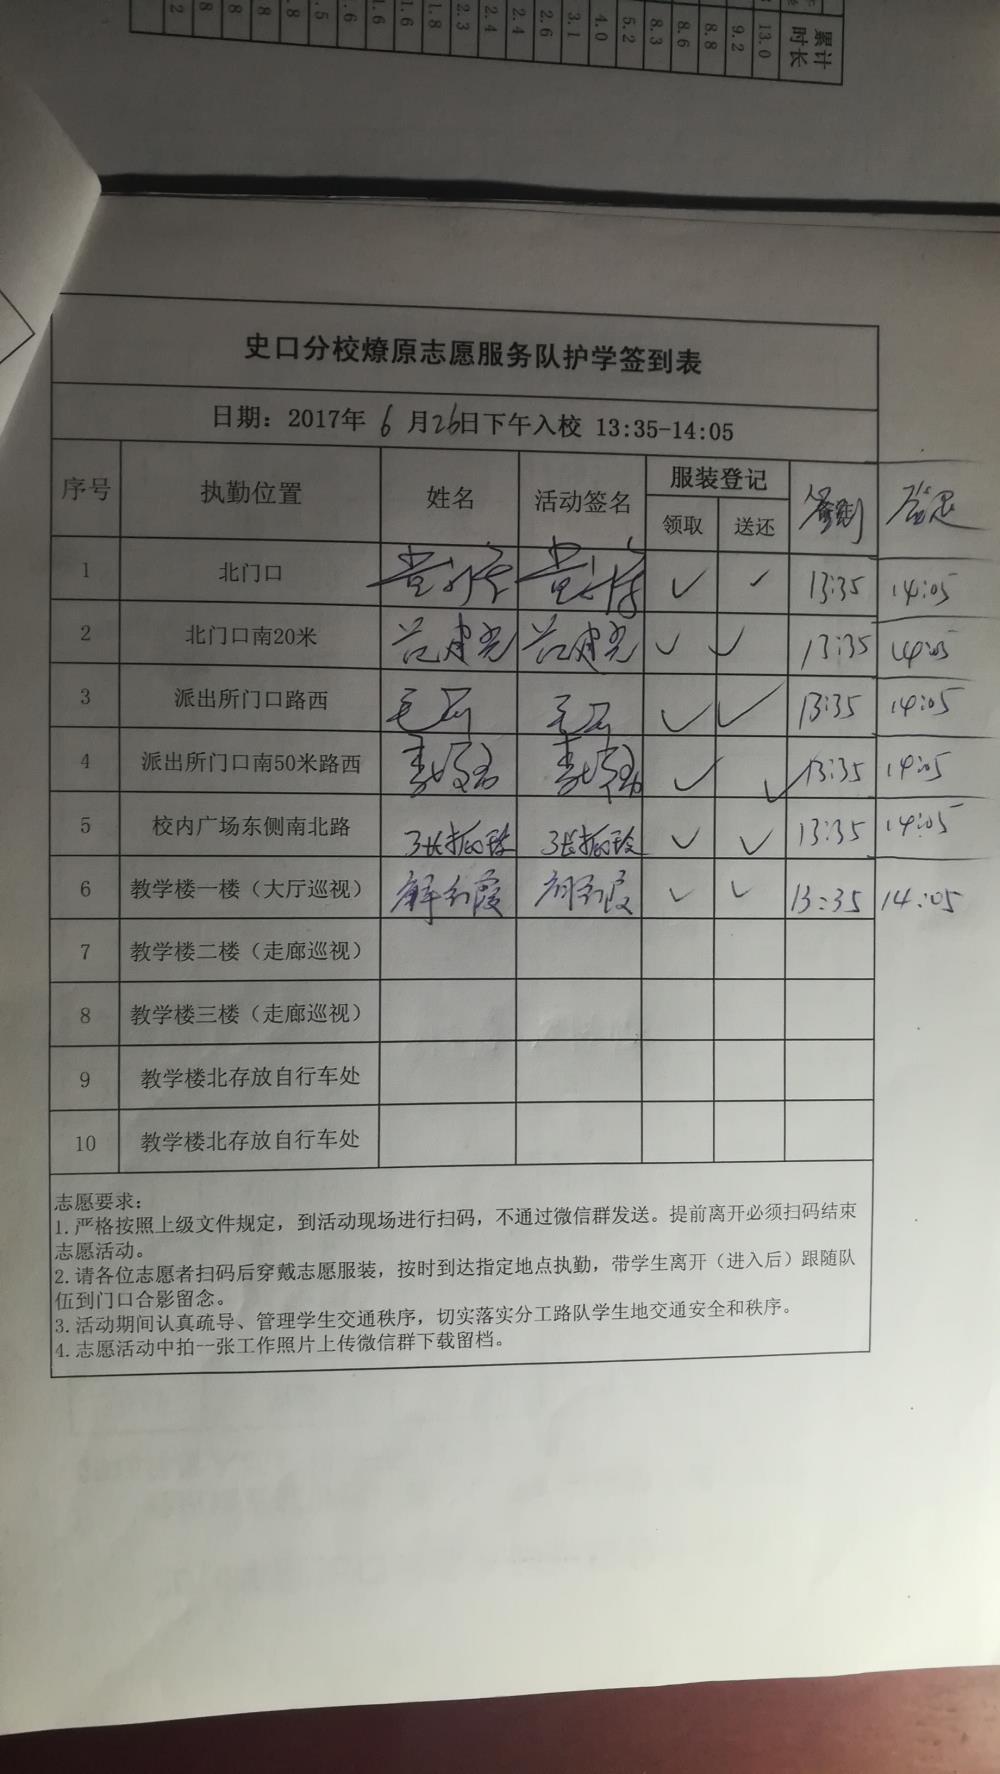 累计
时长
13.0
9.2
8.8
8.6
8.3
5.2
4.0
3.1
2.6
2.4
2.4
2.3
1.8
1.6
1.6
1.6
史口分校燎原志愿服务队护学签到表
日期：2017年 6 月26日下午入校 13:35-14:05
序号 执勤位置 姓名 活动签名 服装登记 签到 签退
领取 送还
1 北门口 ✓ ✓ 13:35 14:05
2 北门口南20米 范建光 范建光 ✓ ✓ 13:35 14:05
3 派出所门口路西 ✓ ✓ 13:35 14:05
4 派出所门口南50米路西 ✓ ✓ 13:35 14:05
5 校内广场东侧南北路 ✓ ✓ 13:35 14:05
6 教学楼一楼（大厅巡视） ✓ ✓ 13:35 14:05
7 教学楼二楼（走廊巡视）
8 教学楼三楼（走廊巡视）
9 教学楼北存放自行车处
10 教学楼北存放自行车处
志愿要求：
1.严格按照上级文件规定，到活动现场进行扫码，不通过微信群发送。提前离开必须扫码结束
志愿活动。
2.请各位志愿者扫码后穿戴志愿服装，按时到达指定地点执勤，带学生离开（进入后）跟随队
伍到门口合影留念。
3.活动期间认真疏导、管理学生交通秩序，切实落实分工路队学生地交通安全和秩序。
4.志愿活动中拍一张工作照片上传微信群下载留档。